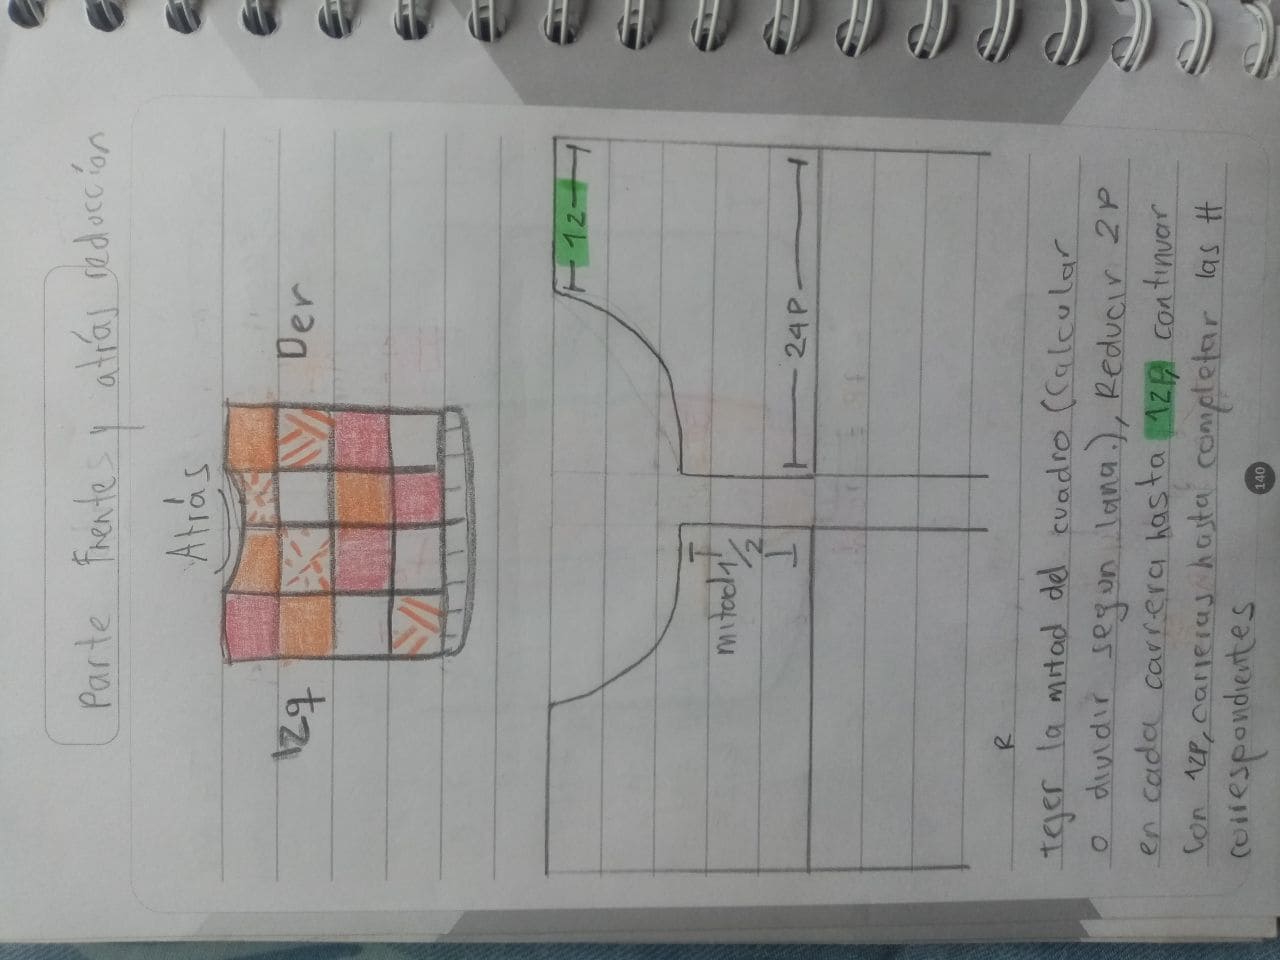 Parte Frentes y atrás reducción
Atrás
Izq
Der
12
mitad 1/2
24P
R
tejer la mitad del cuadro (Calcular
o dividir segun lana.), Reducir 2P
en cada carrera hasta 12P, continuar
con 12P, carreras hasta completar las #
correspondientes
140